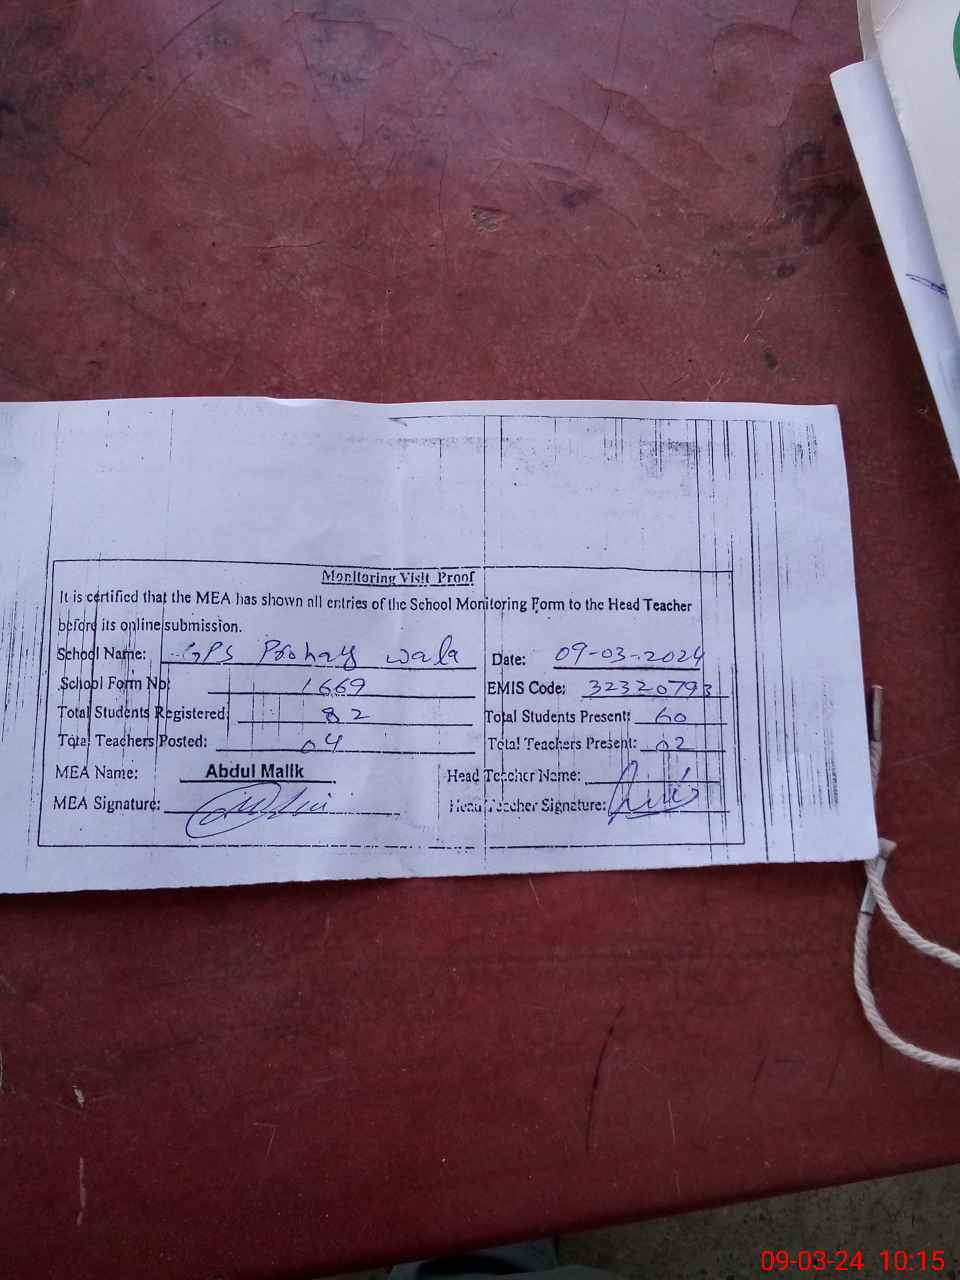 Monitoring Visit Proof
It is certified that the MEA has shown all entries of the School Monitoring Form to the Head Teacher
before its online submission.
School Name: GPS Poohay wala Date: 09-03-2024
School Form No: 1669 EMIS Code: 32320793
Total Students Registered: 82 Total Students Present: 60
Total Teachers Posted: 04 Total Teachers Present: 02
MEA Name: Abdul Malik Head Teacher Name:
MEA Signature: Head Teacher Signature:
09-03-24 10:15